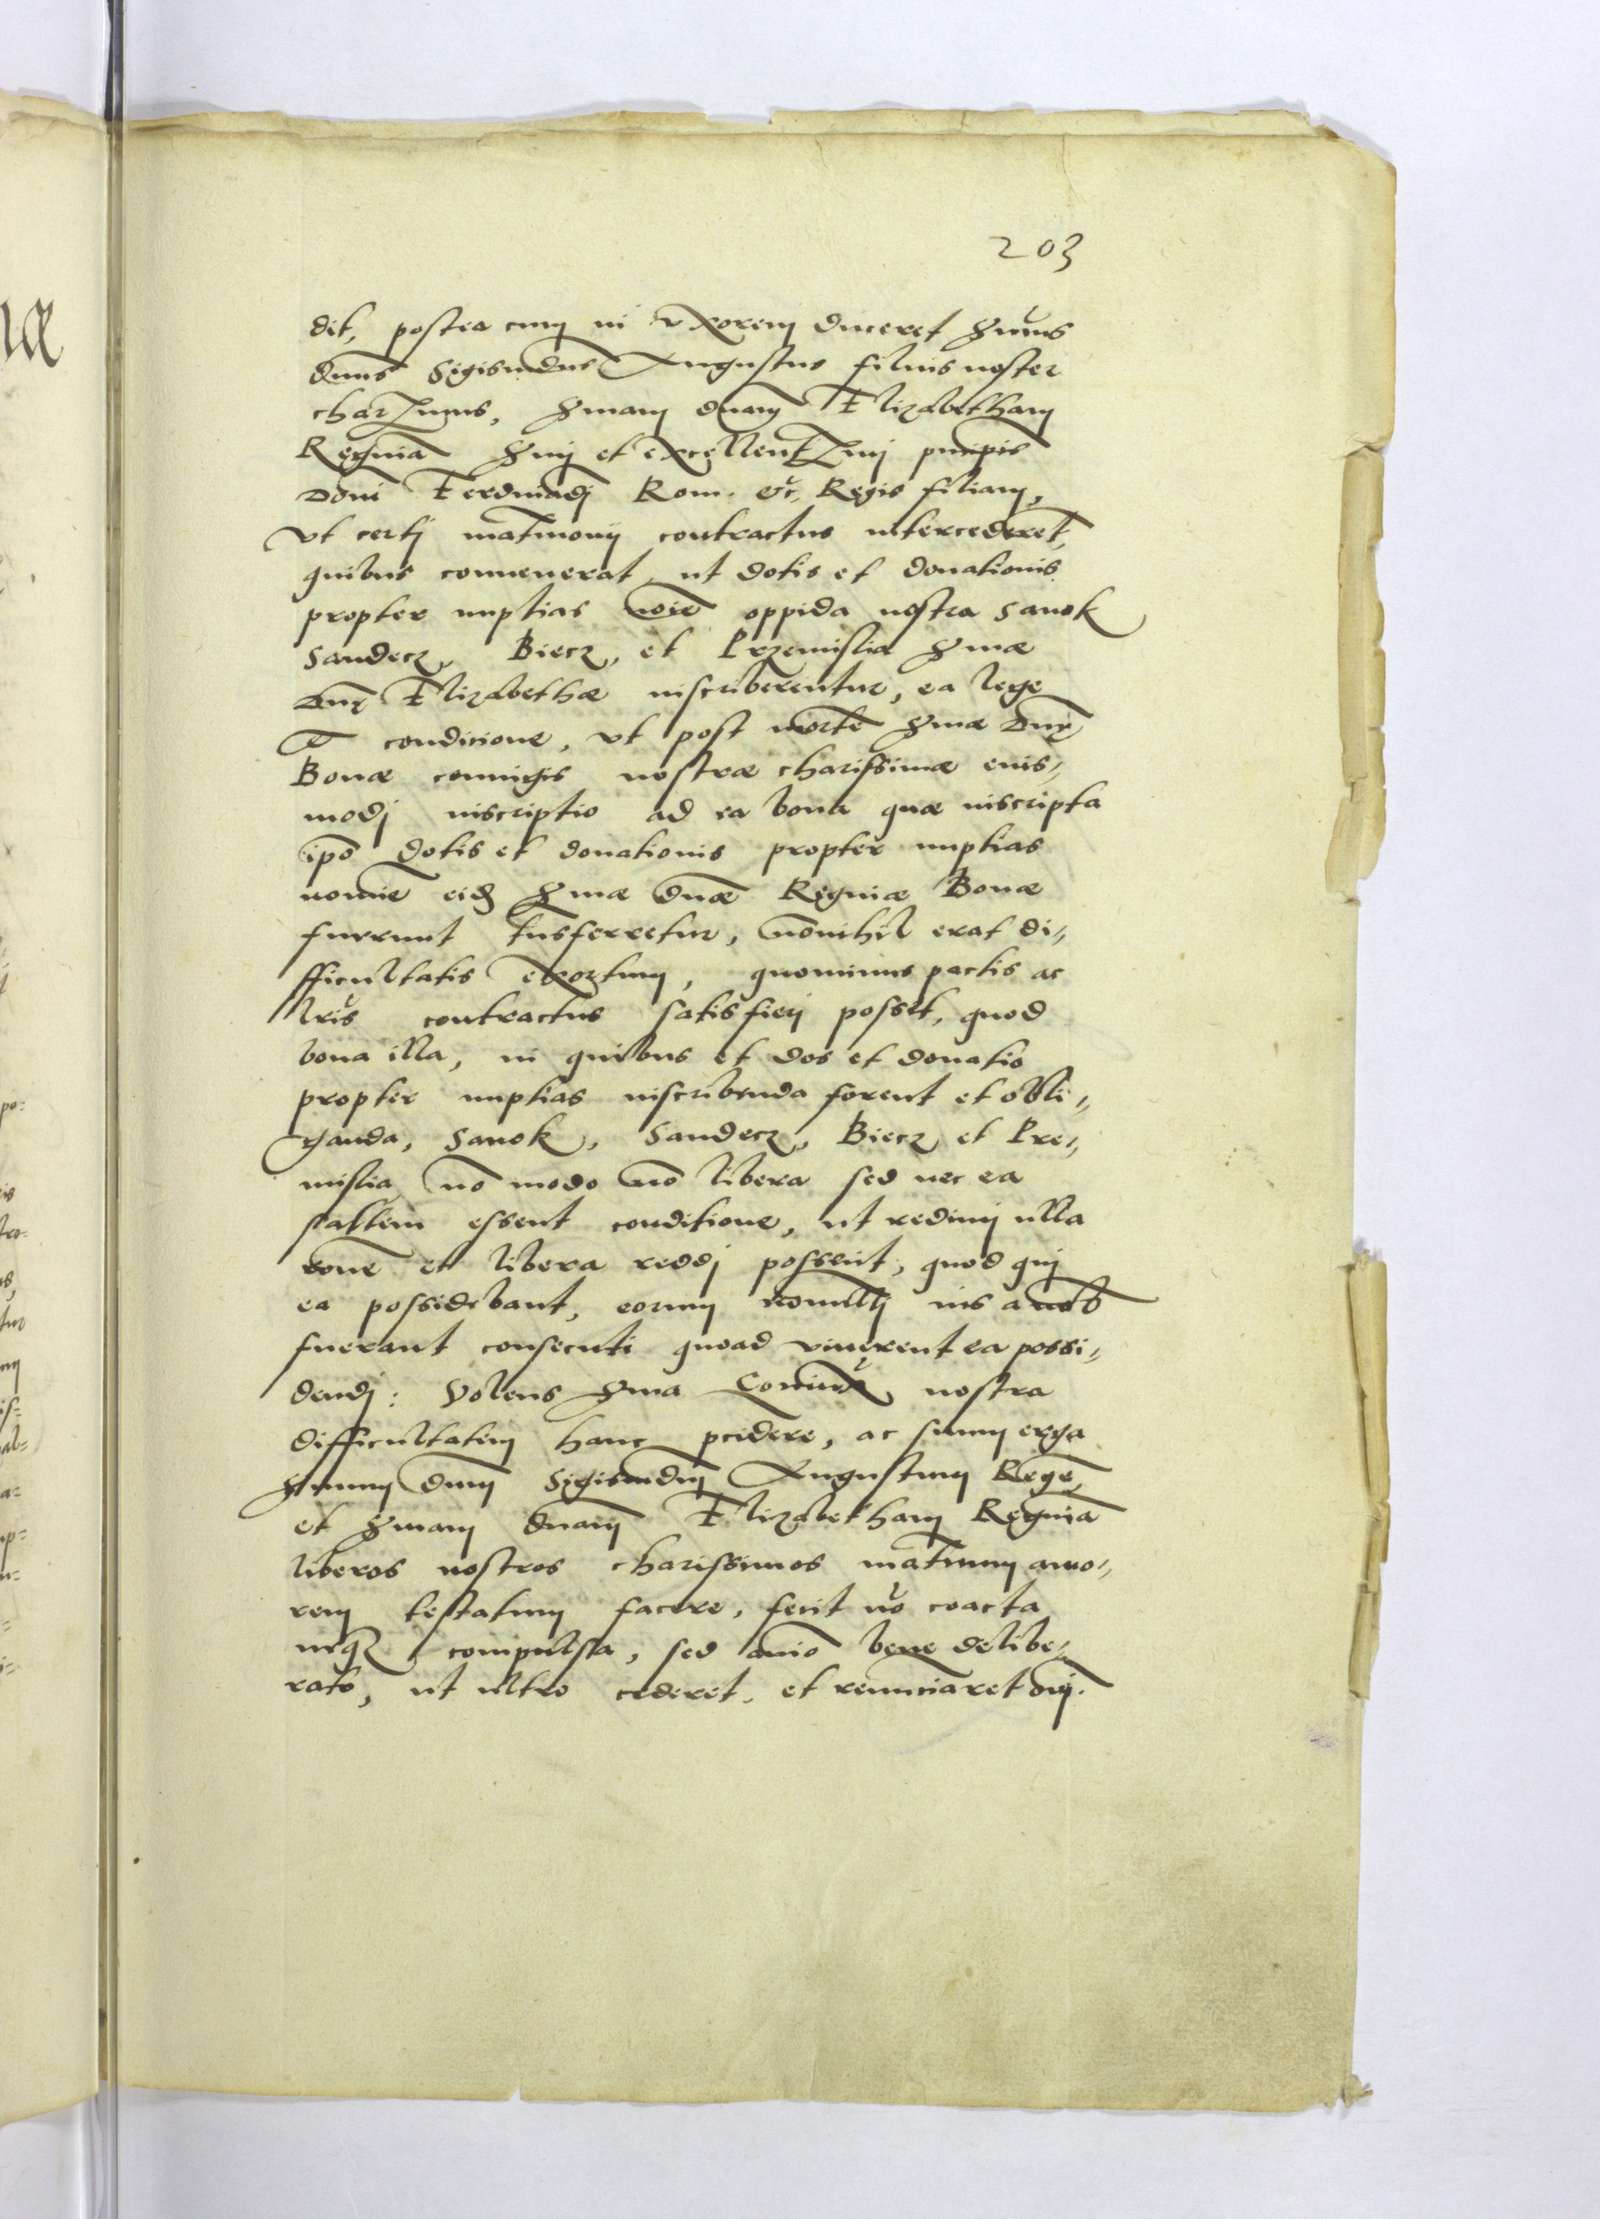 203
dit, postea cum in vxorem duceret Smus
dnus Sigismdus Augustus filius noster
charissimus, Smam dnam Elizabetham
Reginā Smi et excellentissimi pncipis
Dōni Ferdinādj Rom. &c. Regis filiam,
vt certj matrimonij contractus intercederet,
quibus conuenerat, ut dotis et donationis
propter nuptias noīe oppida nostra Sanok
Sandecz, Biecz, et Przemislia Smæ
Dnę Elizabethæ inscriberentur, ea lege
a condicione, vt post mortē Smæ Dnę
Bonæ coniugis nostræ charissimæ eius„
modj inscriptio ad ea bona quæ inscripta
ipō dotis et donationis propter nuptias
nomīe eidē Smæ Dnæ Reginæ Bonæ
fuerunt trnsferretur, nōnihil erat di„
fficultatis exortum, quominus pactis ac
lrīs contractus satisfierj posset, quod
bona illa, in quibus et dos et donatio
propter nuptias inscribenda forent et obli„
ganda, Sanok, Sandecz, Biecz et Pre„
mislia nō modo nō libera sed nec ea
saltem essent conditione, ut redimj ulla
rone et libera reddj possent, quod qui
ea possidebant, eorum nonullj ius a nob
fuerant consecuti quoad viuerent ea possi„
dendj: Volens Sma Coniux nostra
difficultatem hanc pcidere, ac suum erga
Smum dnm Sigismdum Augustum Regē,
et Smam dnam Elizabetham Reginā
liberos nostros charissimos maternum amo„
rem testatum facere, fecit nō coacta
neqз compulsa, sed aīo bene delibe„
rato, ut ultro cederet, et renunciaret oīj.